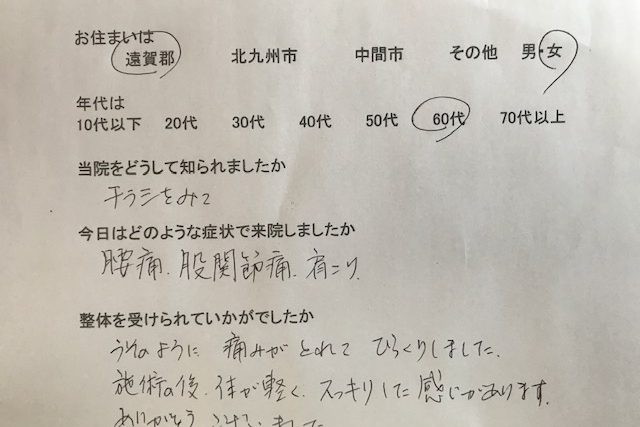 お住まいは
遠賀郡 北九州市 中間市 その他 男・女
年代は
10代以下 20代 30代 40代 50代 60代 70代以上
当院をどうして知られましたか
チラシをみて
今日はどのような症状で来院しましたか
腰痛、股関節痛、肩こり
整体を受けられていかがでしたか
うそのように 痛みが とれて びっくりしました。
施術の後、体が軽く、スッキリした感じがあります。
ありがとうございました